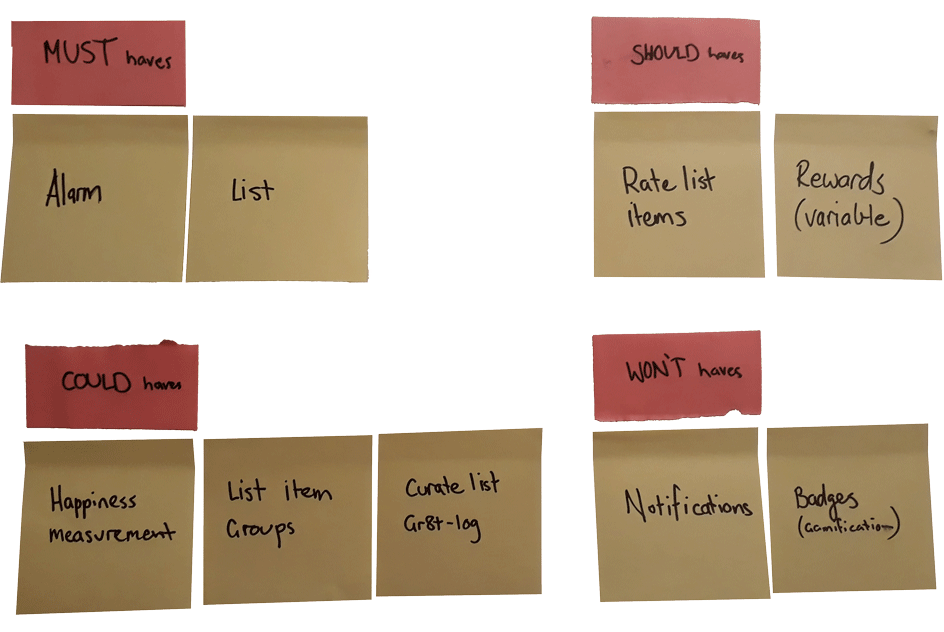 MUST haves
Alarm
List
SHOULD haves
Rate list
items
Rewards
(variable)
COULD haves
Happiness
measurement
List item
Groups
Curate list
Gr8t-log
WON'T haves
Notifications
Badges
(Gamification)